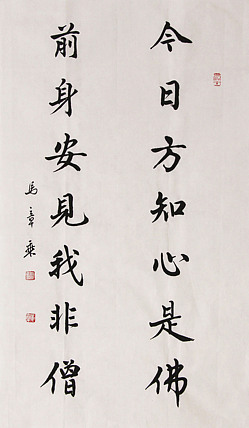 今日方知心是佛
前身安見我非僧
馬章乘